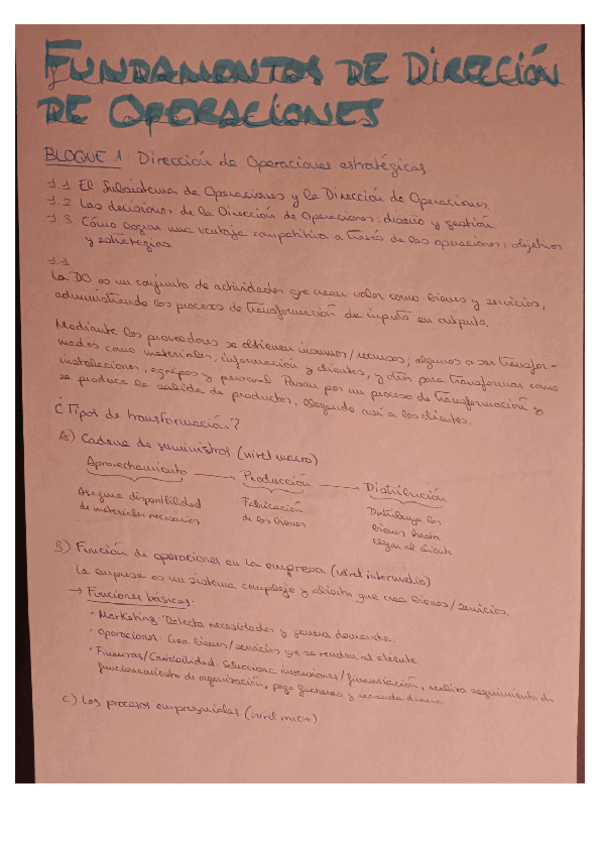 FUNDAMENTOS DE DIRECCIÓN
DE OPERACIONES
BLOQUE 1: Dirección de Operaciones estratégicas
1.1 El Subsistema de Operaciones y la Dirección de Operaciones.
1.2 Las decisiones de la Dirección de Operaciones: diseño y gestión
1.3 Cómo lograr una ventaja competitiva a través de las operaciones: objetivos
y estrategias
1.1
La DO es un conjunto de actividades que crean valor como bienes y servicios,
administrando los procesos de transformación de inputs en outputs.
Mediante los proveedores se obtienen insumos/recursos; algunos a ser transfor-
mados como materiales, información y clientes, y otros para transformar como
instalaciones, equipos y personal. Pasan por un proceso de transformación y
se produce la salida de productos, llegando así a los clientes.
¿Tipos de transformación?
A) Cadena de suministros (nivel macro)
Aprovechamiento — Producción — Distribución
Asegura disponibilidad Fabricación Distribuye los
de materiales necesarios de los bienes bienes hasta
llegar al cliente
B) Función de operaciones en la empresa (nivel intermedio)
La empresa es un sistema complejo y abierto que crea bienes/servicios.
→ Funciones básicas:
• Marketing: Detecta necesidades y genera demanda.
• Operaciones: Crea bienes/servicios que se venden al cliente
• Finanzas/Contabilidad: Selecciona inversiones/financiación, realiza seguimiento de
funcionamiento de organización, paga facturas y recauda dinero
C) Los procesos empresariales (nivel micro)